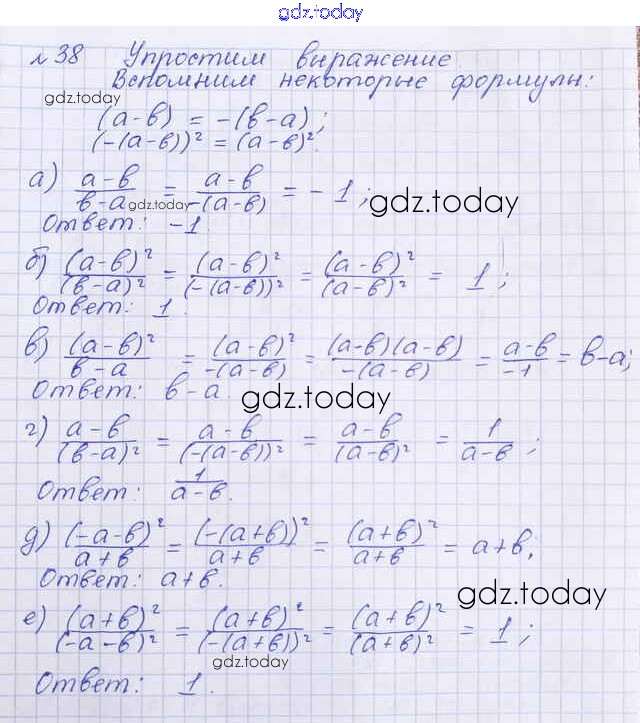 gdz.today
№ 38 Упростим выражение.
Вспомним некоторые формулы:
gdz.today
(a-в) = -(в-a);
(-(a-в))² = (a-в)².
а) (a-в)/(в-a) = (a-в)/(-(a-в)) = -1;
gdz.today
gdz.today
Ответ: -1.
б) (a-в)²/(в-a)² = (a-в)²/(-(a-в))² = (a-в)²/(a-в)² = 1;
Ответ: 1.
в) (a-в)²/(в-a) = (a-в)²/(-(a-в)) = (a-в)(a-в)/(-(a-в)) = (a-в)/(-1) = в-a;
Ответ: в-a.
gdz.today
г) (a-в)/(в-a)² = (a-в)/(-(a-в))² = (a-в)/(a-в)² = 1/(a-в);
Ответ: 1/(a-в).
д) (-a-в)²/(a+в) = (-(a+в))²/(a+в) = (a+в)²/(a+в) = a+в;
Ответ: a+в.
gdz.today
е) (a+в)²/(-a-в)² = (a+в)²/(-(a+в))² = (a+в)²/(a+в)² = 1;
gdz.today
Ответ: 1.